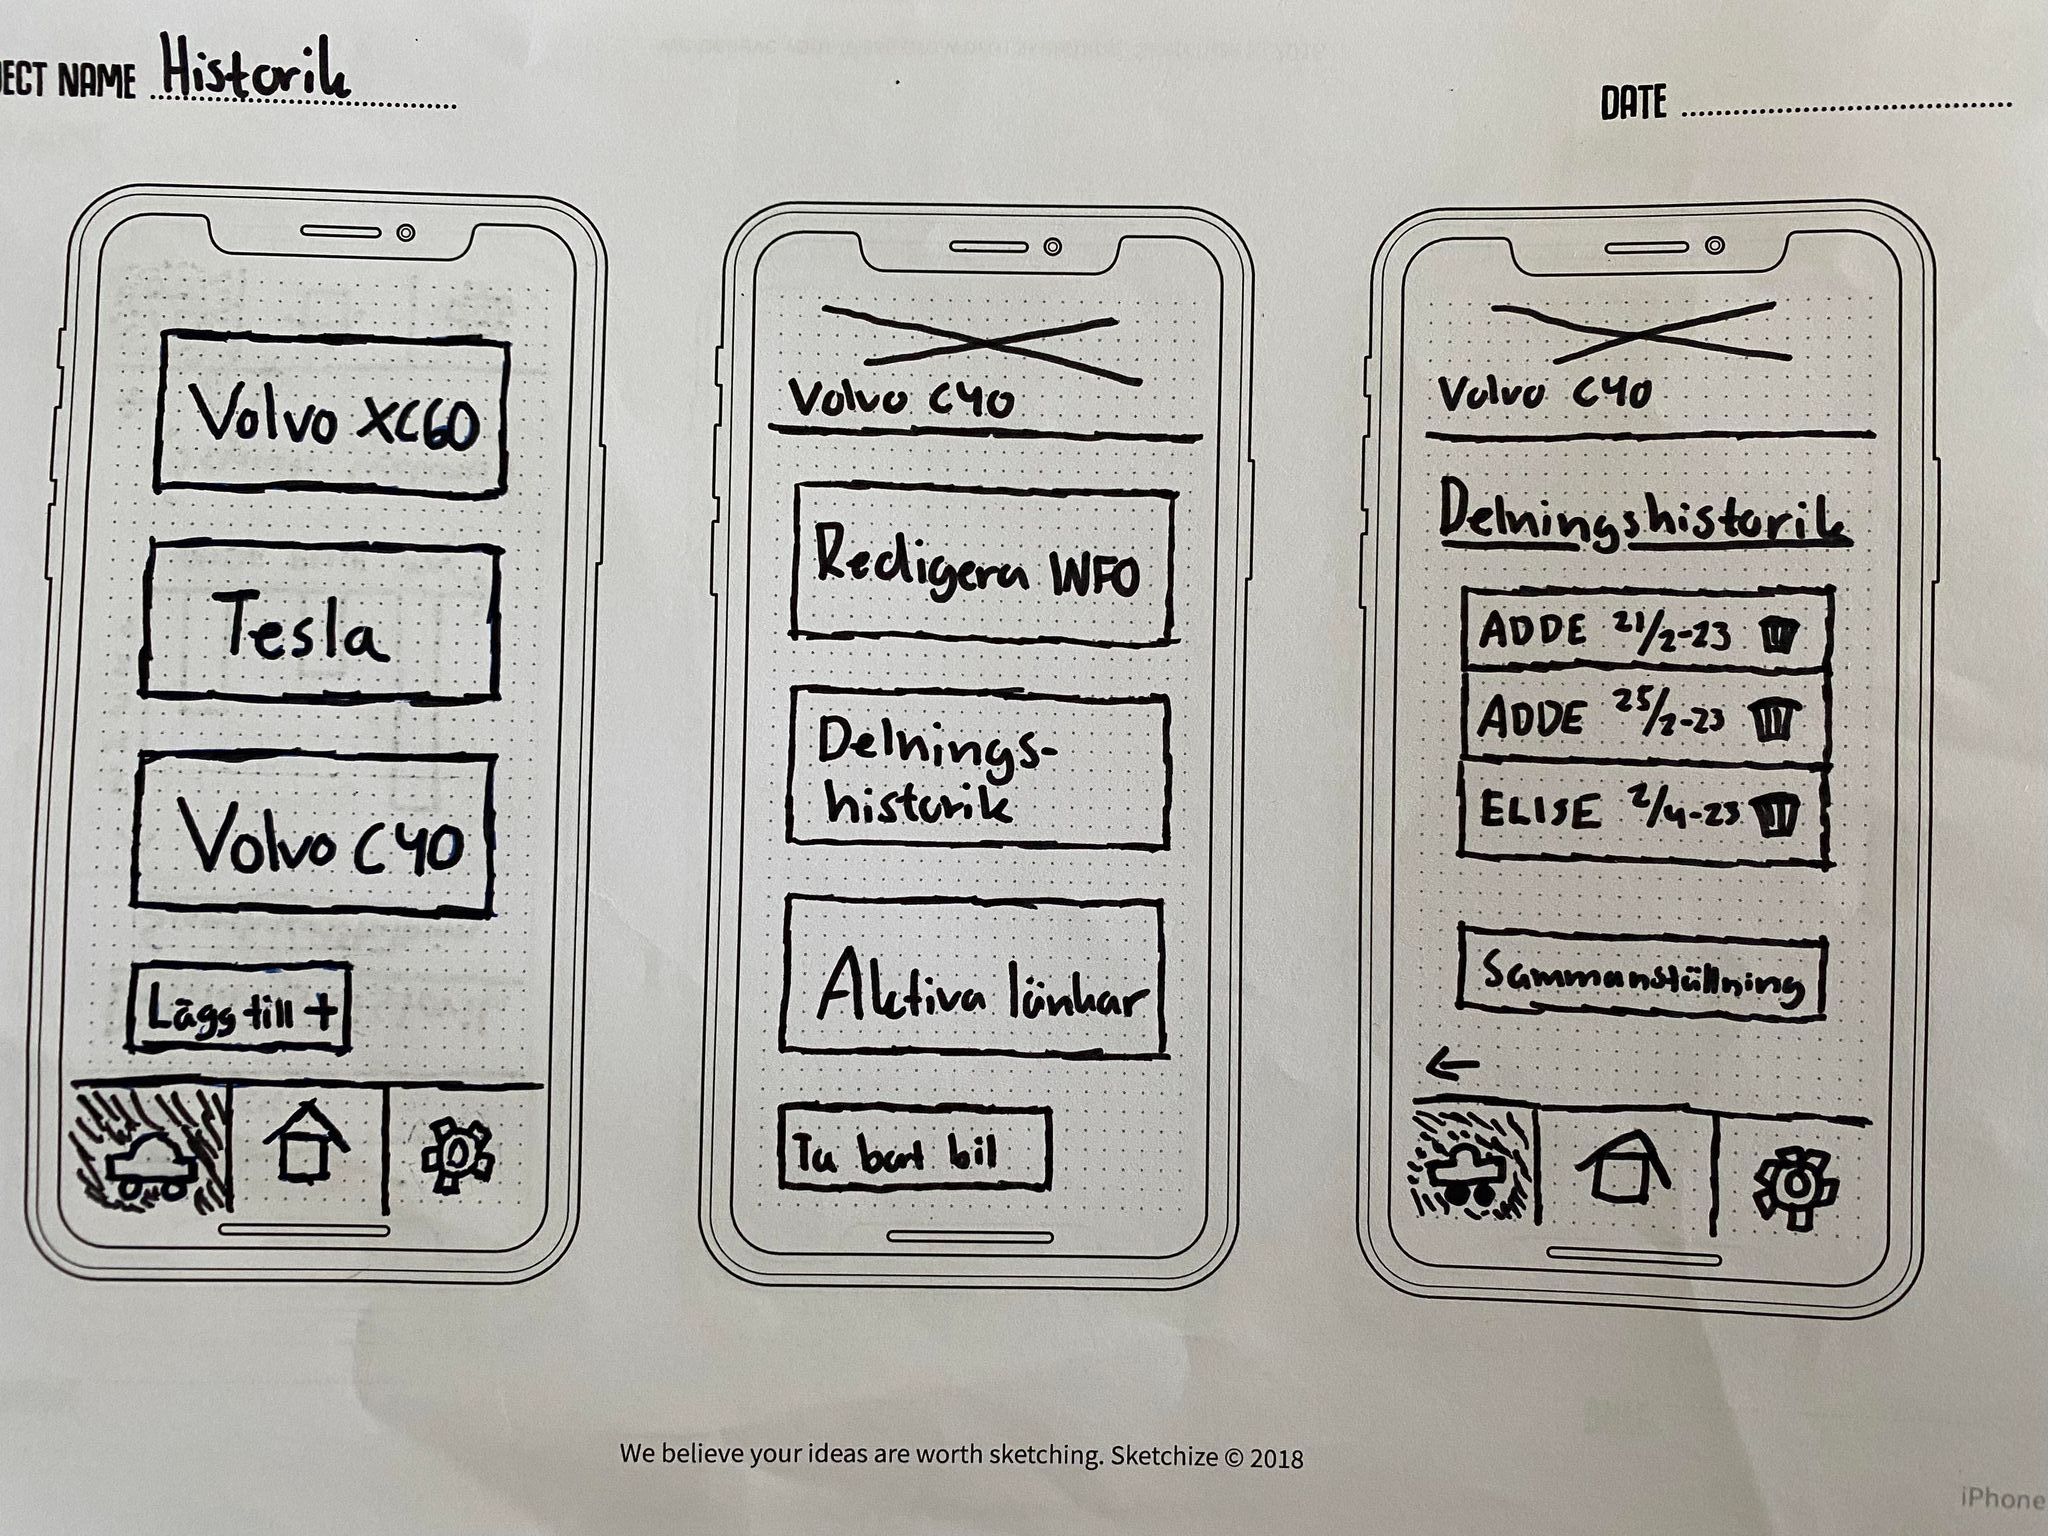 JECT NAME Historik
DATE
Volvo XC60
Tesla
Volvo C40
Lägg till +
Volvo C40
Redigera INFO
Delnings-
historik
Aktiva länkar
Ta bort bil
Volvo C40
Delningshistorik
ADDE 21/2-23
ADDE 25/2-23
ELISE 2/4-23
Sammanställning
We believe your ideas are worth sketching. Sketchize © 2018
iPhone